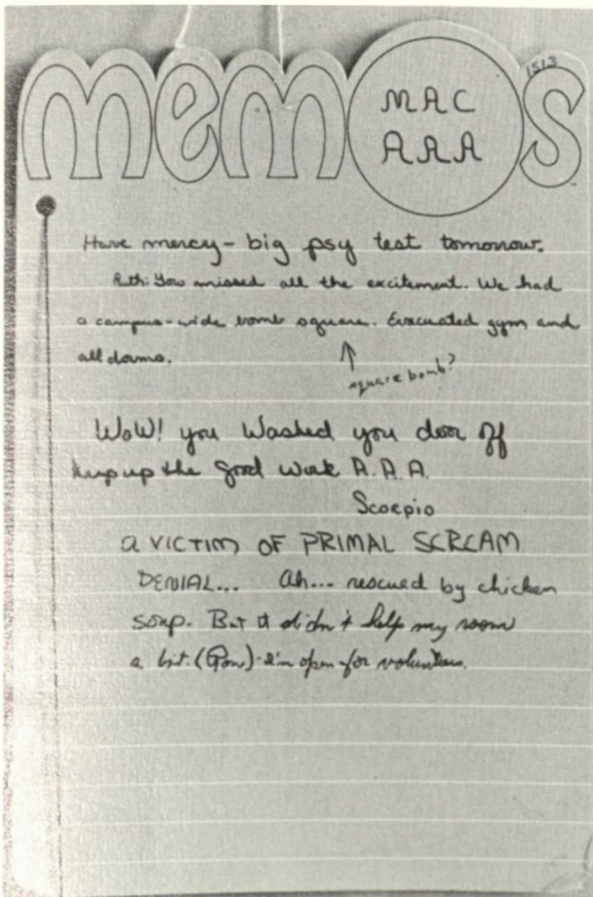 memos
MAC
AAA
1513
Have mercy - big psy test tomorrow.
Ruth: You missed all the excitement. We had
a campus-wide bomb square. Evacuated gym and
all dorms.
square bomb?
WoW! you Washed you door off
keep up the good work A.A.A.
Scorpio
a VICTIM OF PRIMAL SCREAM
DENIAL... ah... rescued by chicken
soup. But it didn't help my room
a bit. I'm open for volunteers.